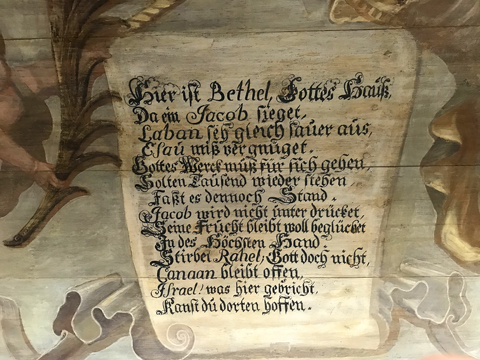 Hier ist Bethel, Gottes Hauß,
Da ein Jacob sieget,
Laban seh gleich sauer aus,
Esau miß vergnüget.
Gottes Werck müß für sich gehen,
Solten Tausend wieder stehen,
Fast es dennoch Stand.
Jacob wird nicht unter drücket,
Seine Frücht bleibt woll beglücket
In des Höchsten Hand.
Stirbet Rahel, Gott doch nicht,
Canaan bleibt offen,
Israel! was hier gebricht,
Kanst dü dorten hoffen.